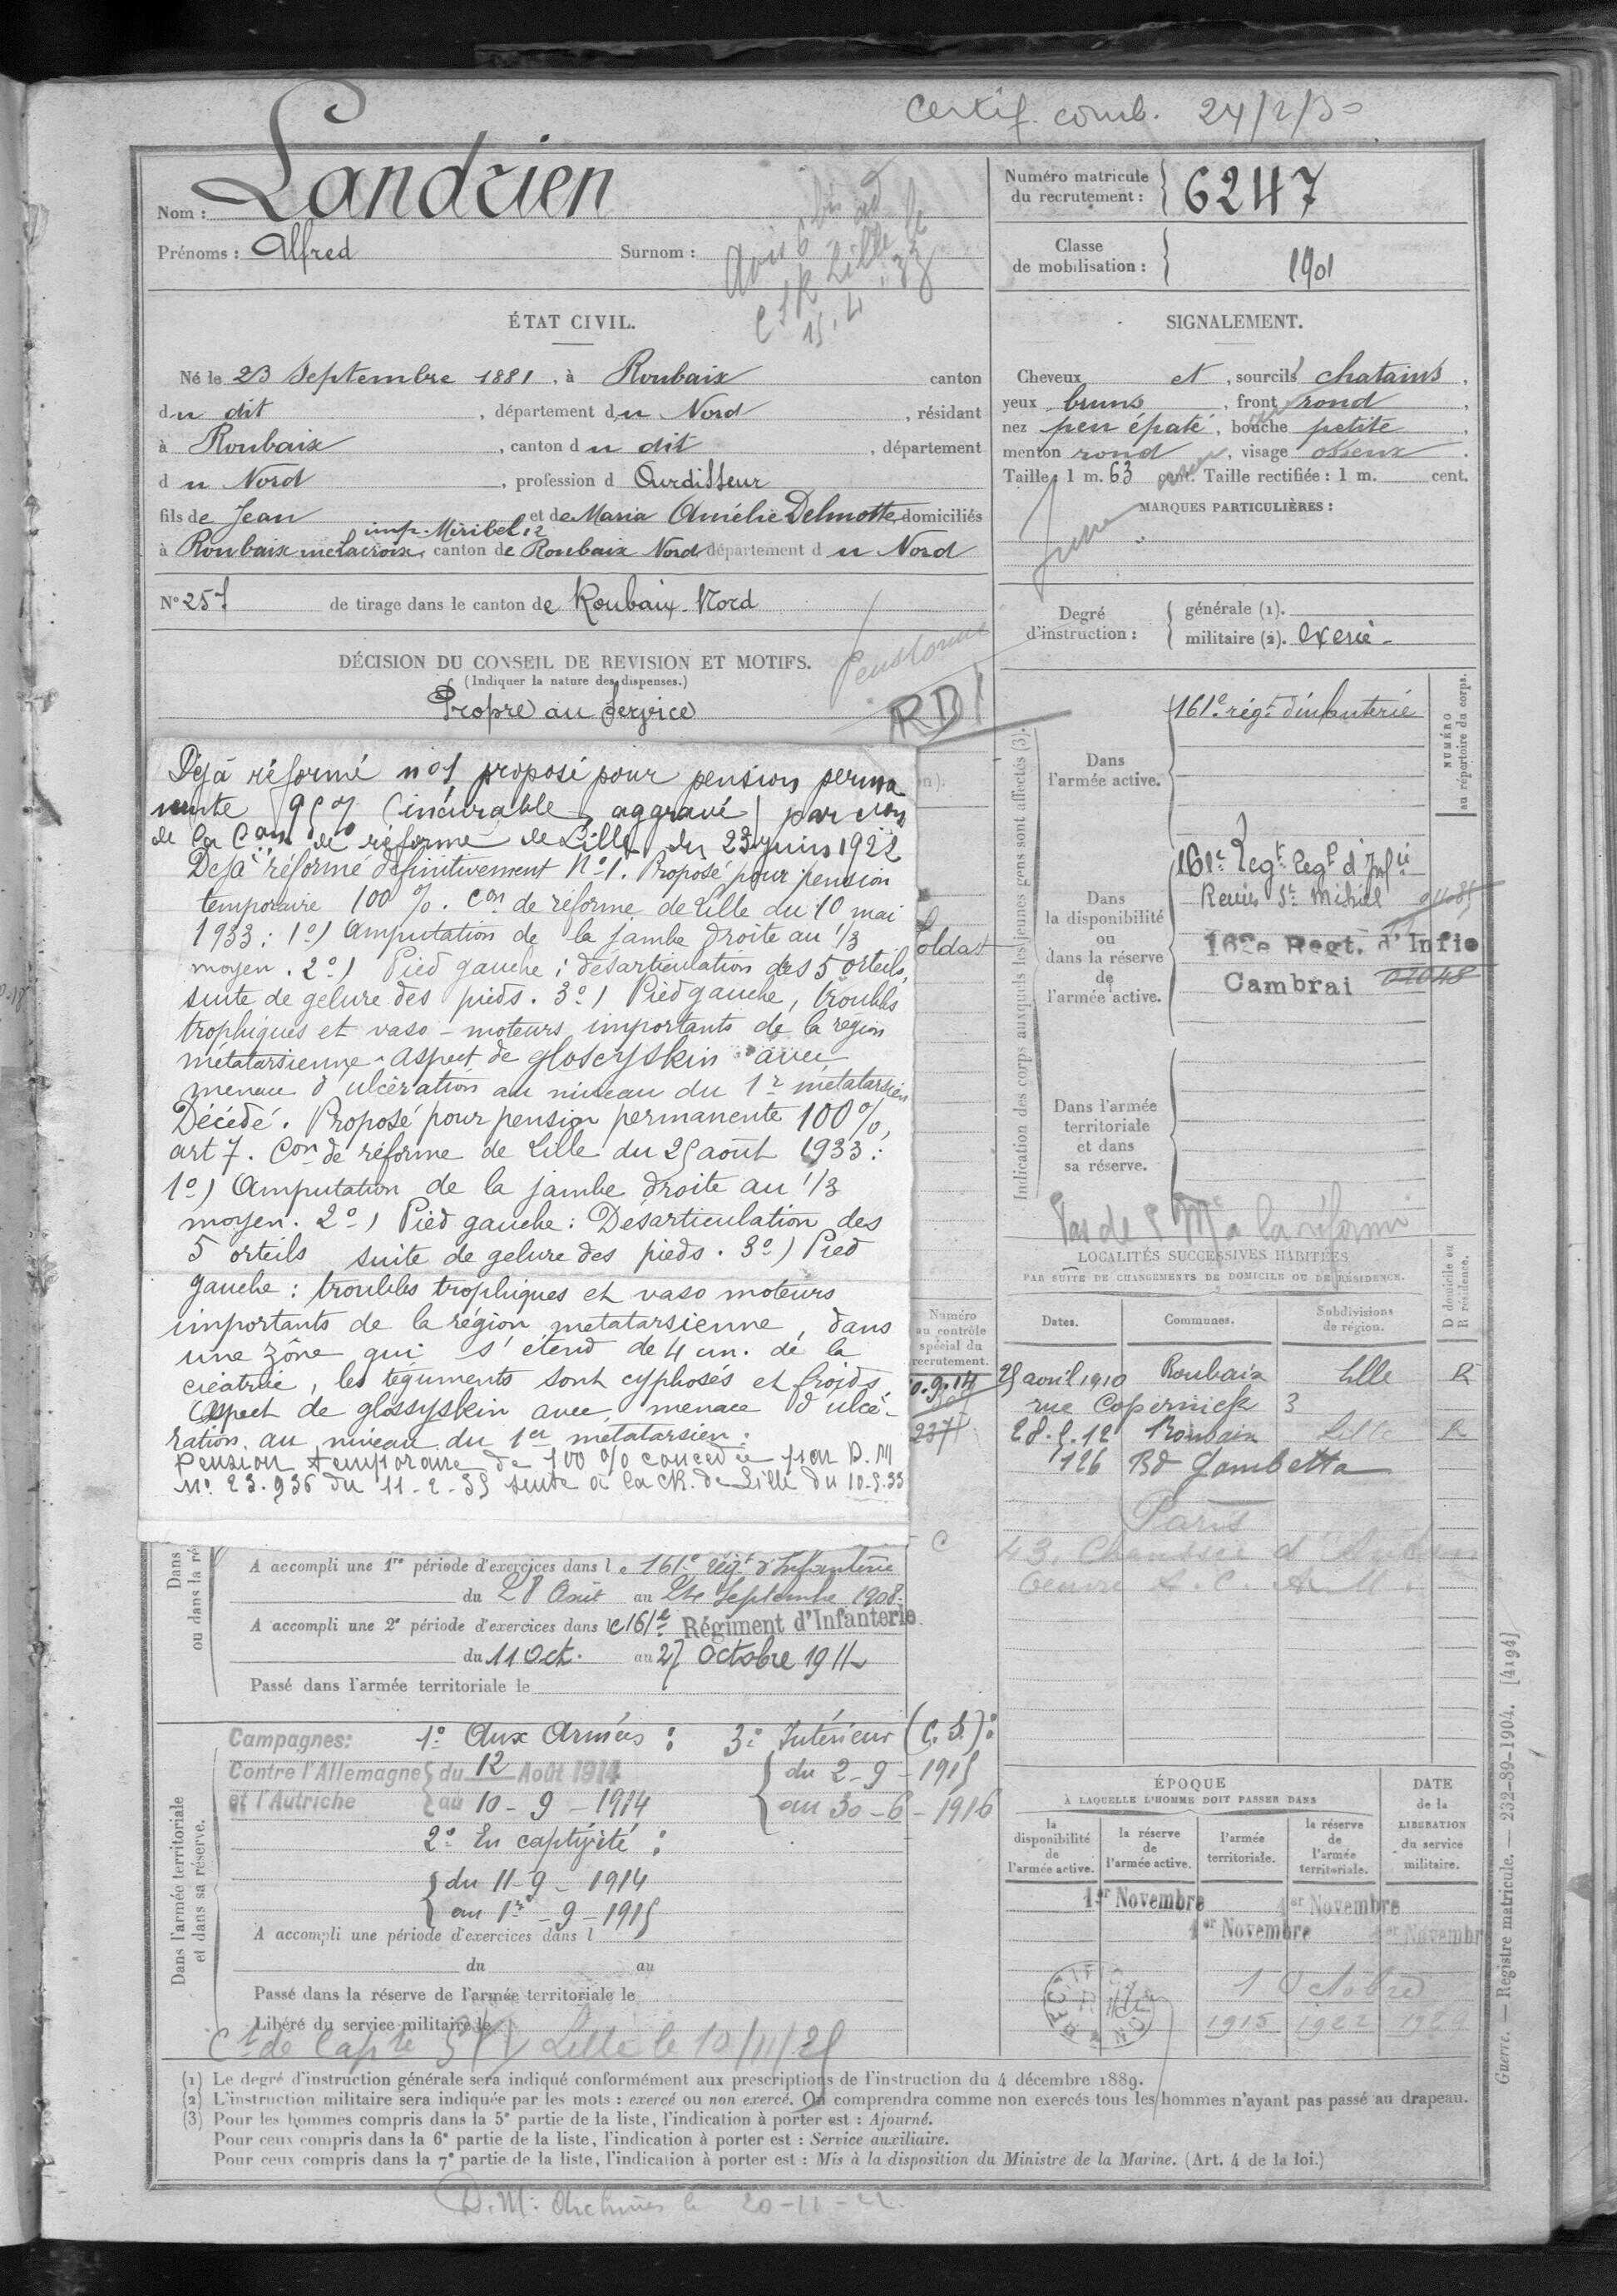 Certif. comb. 24/2/30
Nom : Landrien
Prénoms : Alfred Surnom :
Avis 6 bis ad
CSR Lille le
15.4.33
Numéro matricule
du recrutement : 6247
Classe
de mobilisation : 1901
ÉTAT CIVIL.
Né le 23 Septembre 1881, à Roubaix canton
du dit, département du Nord, résidant
à Roubaix, canton du dit, département
du Nord, profession d Ourdisseur
fils de Jean et de Maria Amélie Delmotte, domiciliés
imp. Miribel 12
à Roubaix rue Lacroix, canton de Roubaix Nord département du Nord
N° 257 de tirage dans le canton de Roubaix-Nord
SIGNALEMENT.
Cheveux et, sourcils chatains,
yeux bruns, front rond,
nez peu épaté, bouche petite,
menton rond, visage osseux.
Taille : 1 m. 63 cent. Taille rectifiée : 1 m. cent.
MARQUES PARTICULIÈRES :
Degré
d'instruction :
générale (1).
militaire (2). exercé.
DÉCISION DU CONSEIL DE REVISION ET MOTIFS.
(Indiquer la nature des dispenses.)
Propre au service
RD1
Déjà réformé n°1 proposé pour pension perma
nente 95% (incurable, aggravé) par
de la Con de réforme de Lille du 23 juin 1922
Déjà réformé définitivement N°1. Proposé pour pension
temporaire 100 %. Con de réforme de Lille du 10 mai
1933 : 1°) Amputation de la jambe droite au 1/3
moyen. 2°) Pied gauche ; désarticulation des 5 orteils,
suite de gelure des pieds. 3°) Pied gauche, troubles
trophiques et vaso-moteurs importants de la région
métatarsienne. Aspect de gloscyskin avec
menace d'ulcération au niveau du 1r métatarsien
Décédé. Proposé pour pension permanente 100 %,
art 7. Con de réforme de Lille du 25 août 1933 :
1°) Amputation de la jambe droite au 1/3
moyen. 2°) Pied gauche : Désarticulation des
5 orteils suite de gelure des pieds. 3°) Pied
gauche : troubles trophiques et vaso moteurs
importants de la région métatarsienne, dans
une zône qui s'étend de 4 cm. de la
cicatrice, les téguments sont cyphosés et froids.
Aspect de glossyskin avec menace d'ulcé-
ration au niveau du 1er métatarsien.
Pension temporaire de 100 % concédée par D.M
N° 23.936 du 11-2-35 suite à la CR. de Lille du 10.5.33
oldat
Numéro
au contrôle
spécial du
recrutement.
237
Indication des corps auxquels les jeunes gens sont affectés (3).
NUMÉRO
au répertoire du corps.
Dans
l'armée active.
161e régt d'infanterie
Dans
la disponibilité
ou
dans la réserve
de
l'armée active.
161e Regt d'Infie
St Mihiel
162e Regt. d'Infie
Cambrai 01048
Dans l'armée
territoriale
et dans
sa réserve.
Pas de la réforme
LOCALITÉS SUCCESSIVES HABITÉES
PAR SUITE DE CHANGEMENTS DE DOMICILE OU DE RÉSIDENCE.
D domicile ou
R résidence.
Dates. Communes. Subdivisions
de région.
25 avril 1910 Roubaix Lille R
rue Copernick 3
28.2.12 Roubaix Lille R
126 Bd Gambetta
Paris
43, Chaussée d'Antin
Dans
ou dans la ré
A accompli une 1re période d'exercices dans le 161e régt d'Infanterie
du 28 Août au 24 Septembre 1908.
A accompli une 2e période d'exercices dans le 161e Régiment d'Infanterie
du 11 Oct. au 27 Octobre 1911
Passé dans l'armée territoriale le
Dans l'armée territoriale
et dans sa réserve.
Campagnes: 1° Aux Armées : 3° Intérieur (C.S.) :
Contre l'Allemagne du 12 Août 1914 du 2-9-1915
et l'Autriche au 10-9-1914 au 30-6-1916
2° En captivité :
du 11-9-1914
au 1r-9-1915
A accompli une période d'exercices dans l
du au
Passé dans la réserve de l'armée territoriale le
Libéré du service militaire le
Lille le 10/11/25
ÉPOQUE
À LAQUELLE L'HOMME DOIT PASSER DANS
DATE
de la
LIBÉRATION
du service
militaire.
la
disponibilité
de
l'armée active.
la réserve
de
l'armée active.
l'armée
territoriale.
la réserve
de
l'armée
territoriale.
1er Novembre 1er Novembre
1er Novembre 1er Novembre
1 Octobre
1915 1922 1929
(1) Le degré d'instruction générale sera indiqué conformément aux prescriptions de l'instruction du 4 décembre 1889.
(2) L'instruction militaire sera indiquée par les mots : exercé ou non exercé. On comprendra comme non exercés tous les hommes n'ayant pas passé au drapeau.
(3) Pour les hommes compris dans la 5e partie de la liste, l'indication à porter est : Ajourné.
Pour ceux compris dans la 6e partie de la liste, l'indication à porter est : Service auxiliaire.
Pour ceux compris dans la 7e partie de la liste, l'indication à porter est : Mis à la disposition du Ministre de la Marine. (Art. 4 de la loi.)
Guerre. — Registre matricule. — 232-89-1904. [4194]
D.M. Archives le 20-11-22.